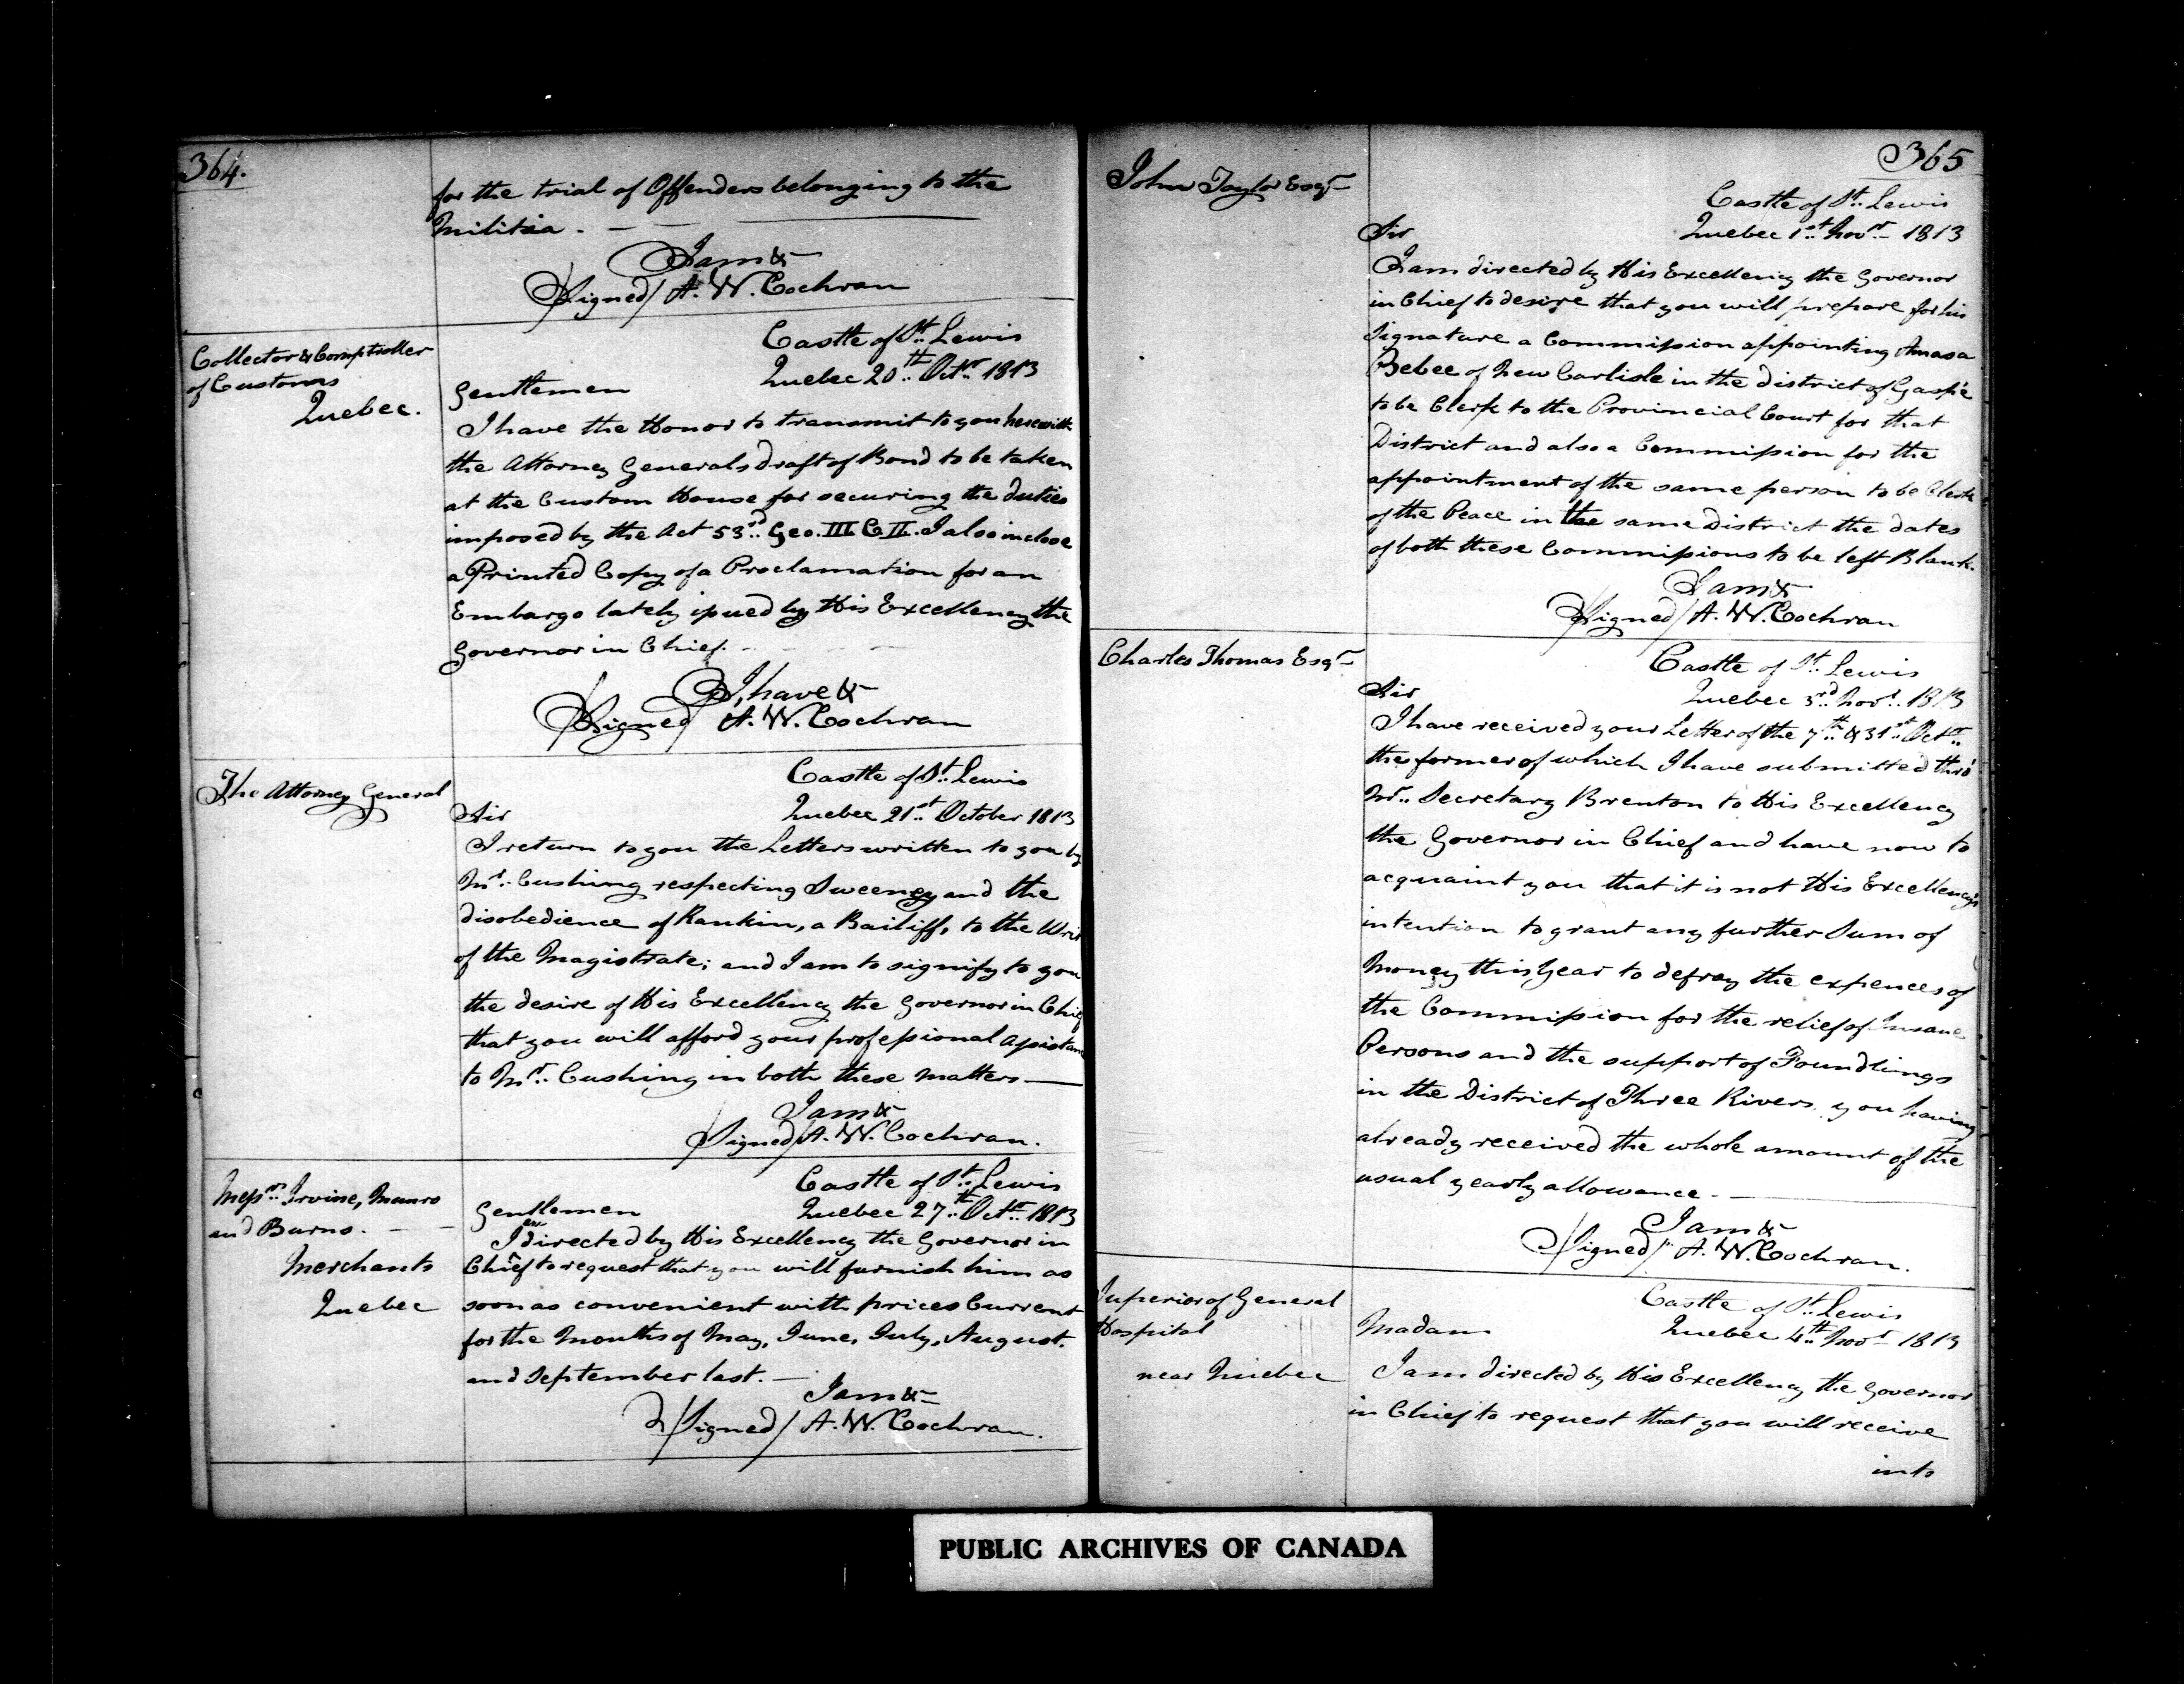 364.
for the trial of Offenders belonging to the
Militia. — —
I am &c
/Signed/ A. W. Cochran
Collector & Comptroller
of Customs
Quebec.
Castle of St. Lewis
Quebec 20th Octr 1813
Gentlemen
I have the Honor to transmit to you herewith
the Attorney Generals draft of Bond to be taken
at the Custom House for securing the duties
imposed by the Act 53rd Geo. III C II. I also inclose
a Printed Copy of a Proclamation for an
Embargo lately issued by His Excellency the
Governor in Chief.
I have &c
/Signed/ A. W. Cochran
The Attorney General
Castle of St. Lewis
Quebec 21st October 1813
Sir
I return to you the Letters written to you by
Mr. Cushing respecting Sweeney and the
disobedience of Rankin, a Bailiff, to the Writ
of the Magistrate; and I am to signify to you
the desire of His Excellency the Governor in Chief
that you will afford your professional assistance
to Mr. Cushing in both these matters —
I am &c
/Signed/ A. W. Cochran.
Messrs. Irvine, Munro
and Burns. — —
Merchants
Quebec
Castle of St. Lewis
Quebec 27th Octr 1813
Gentlemen
I am directed by His Excellency the Governor in
Chief to request that you will furnish him as
soon as convenient with prices Current
for the Months of May, June, July, August.
and September last. —
I am &c
/Signed/ A. W. Cochran.
365
John Taylor Esqr
Castle of St. Lewis
Quebec 1st Novr 1813
Sir
I am directed by His Excellency the Governor
in Chief to desire that you will prepare for his
Signature a Commission appointing Amasa
Bebee of New Carlisle in the district of Gaspé
to be Clerk to the Provincial Court for that
District and also a Commission for the
appointment of the same person to be Clerk
of the Peace in the same District the dates
of both these Commissions to be left Blank.
I am &c
/Signed/ A. W. Cochran
Charles Thomas Esqr
Castle of St. Lewis
Quebec 3rd Novr. 1813
Sir
I have received your Letter of the 7th & 31st Octr.
the former of which I have submitted thro'
Mr. Secretary Brenton to His Excellency
the Governor in Chief and have now to
acquaint you that it is not His Excellency's
intention to grant any further Sum of
Money this Year to defray the expences of
the Commission for the relief of Insane
Persons and the support of Foundlings
in the District of Three Rivers, you having
already received the whole amount of the
usual yearly allowance. —
I am &c
/Signed/ A. W. Cochran.
Superior of General
Hospital
near Quebec
Castle of St. Lewis
Quebec 4th Novr 1813
Madam
I am directed by His Excellency the Governor
in Chief to request that you will receive
into
PUBLIC ARCHIVES OF CANADA